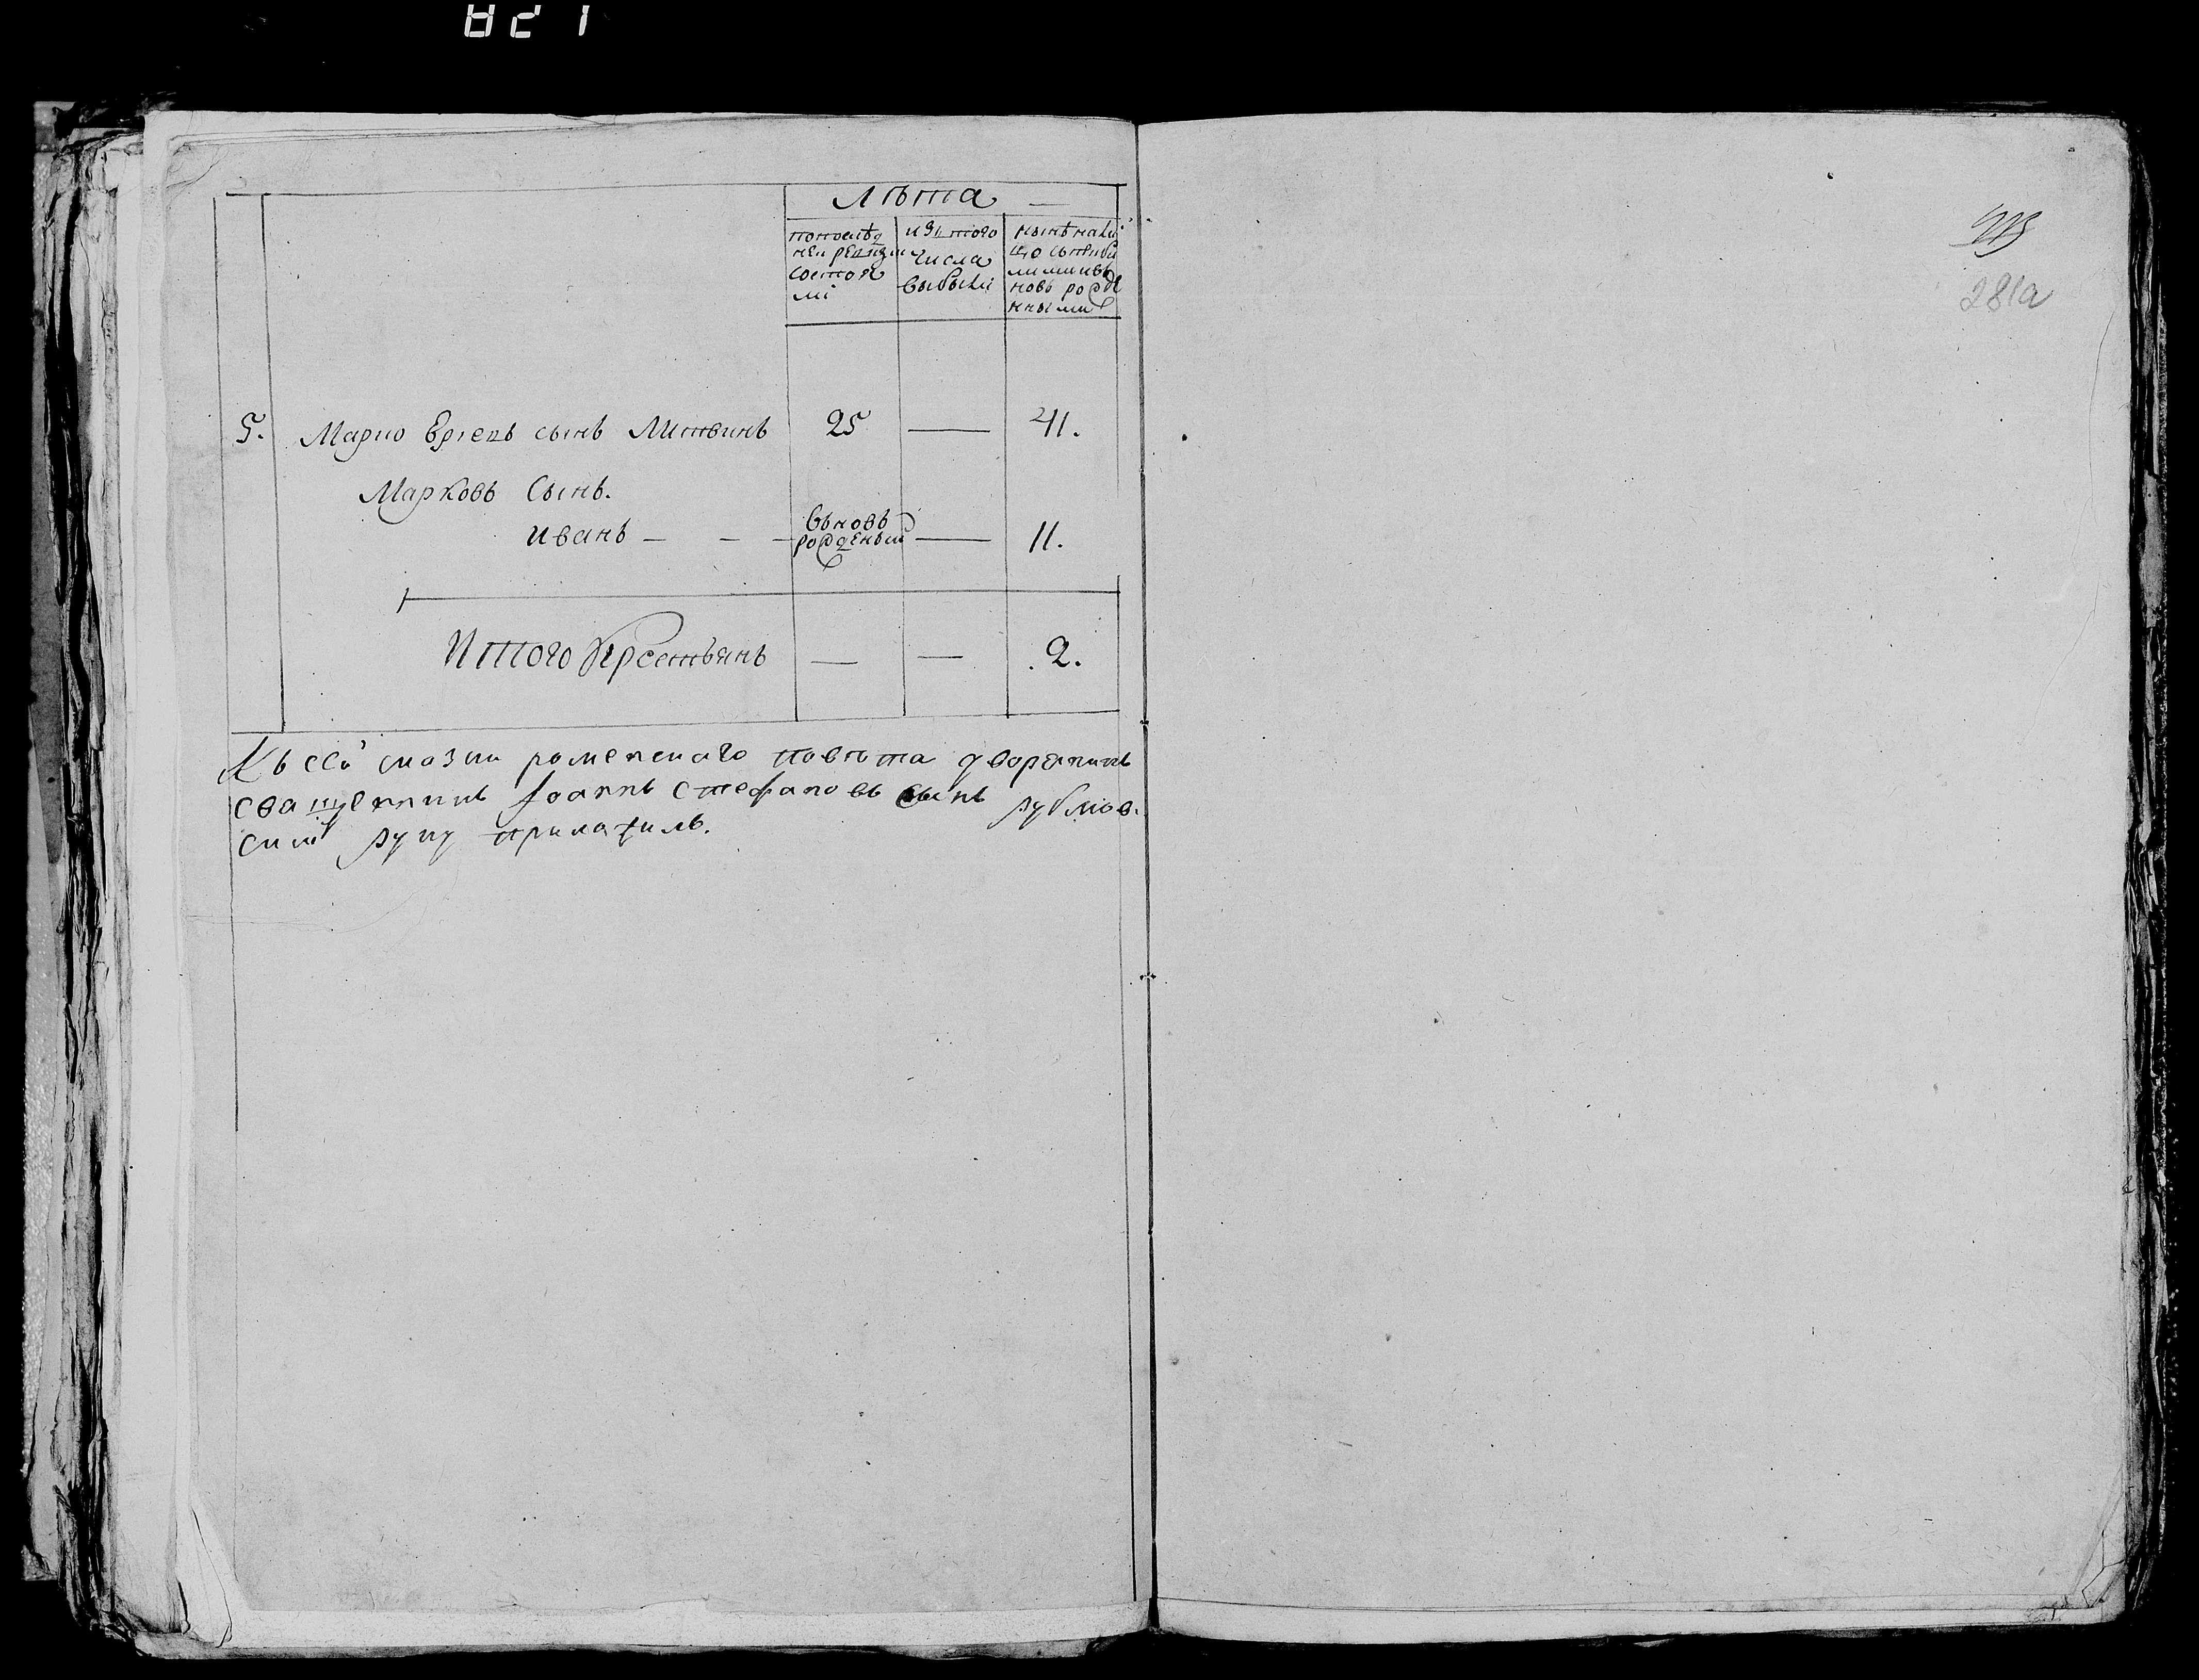 821
Лѣта
попослѣд
ней ревизіи
состоя
ли
изъ того
числа
выбыли
нынѣ нали
цо состоꙗ
ли и
новь рожде
нными
5. Марко сынъ Литвинъ 25 — 41.
Марковъ Сынъ.
Иванъ — — — вьновь рожденый — 11.
Итого Крестьянъ — — .2.
Къ сей сказки роменскаго повѣта дворянинъ
священникъ Іоаннъ Стефановъ сынъ рублев.
скій руку приложилъ.
281а